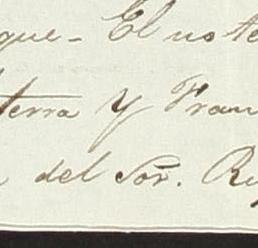 que- El uste
terra y Fran
del Sor. Re